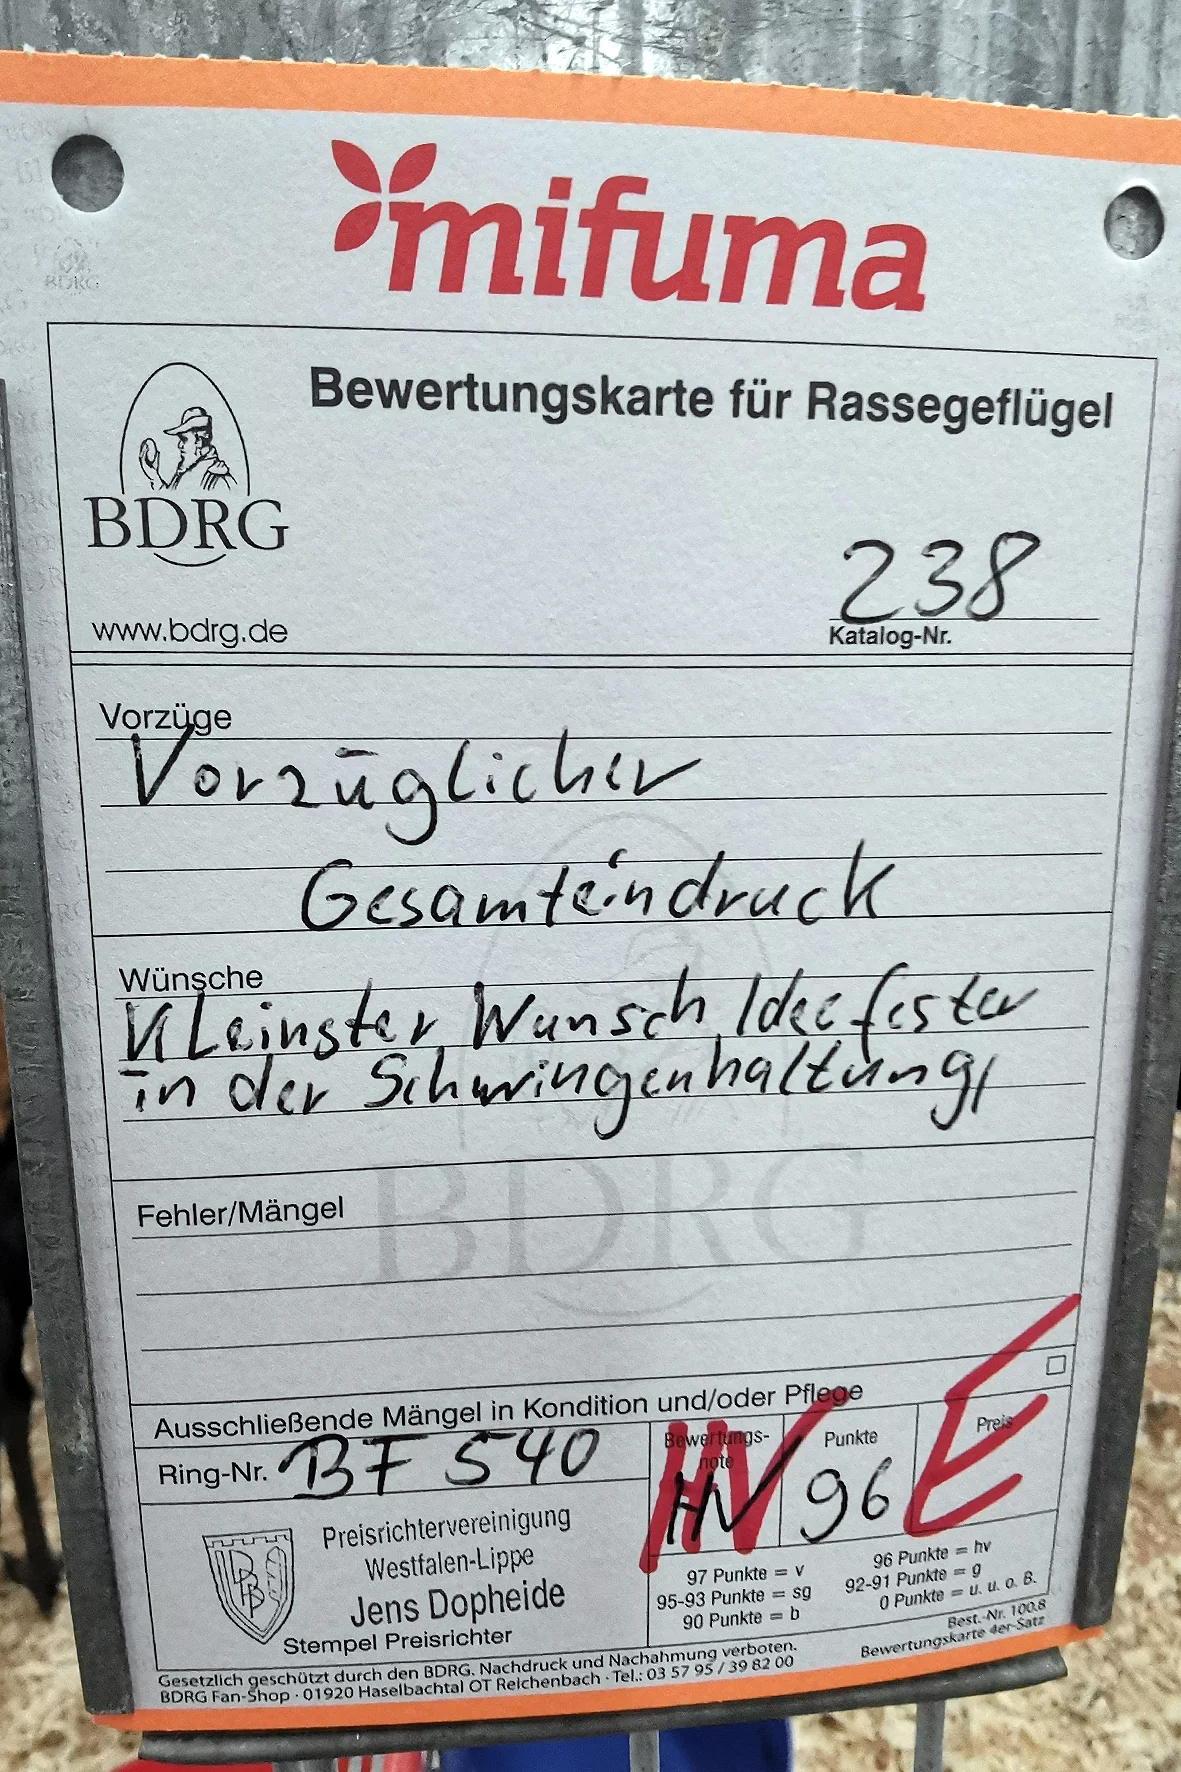 mifuma
Bewertungskarte für Rassegeflügel
BDRG
www.bdrg.de
238
Katalog-Nr.
Vorzüge
Vorzüglicher
Gesamteindruck
Wünsche
Kleinster Wunsch Idee fester
in der Schwingenhaltung,
BDRG
Fehler/Mängel
Ausschließende Mängel in Kondition und/oder Pflege
Ring-Nr. BF 540
Bewertungs-
note
HV
HV
Punkte
96
Preis
E
Preisrichtervereinigung
Westfalen-Lippe
Jens Dopheide
Stempel Preisrichter
97 Punkte = v
96 Punkte = hv
95-93 Punkte = sg
92-91 Punkte = g
90 Punkte = b
0 Punkte = u. u. o. B.
Gesetzlich geschützt durch den BDRG. Nachdruck und Nachahmung verboten.
BDRG Fan-Shop · 01920 Haselbachtal OT Reichenbach · Tel.: 03 57 95 / 39 82 00
Best.-Nr. 100.8
Bewertungskarte 4er-Satz